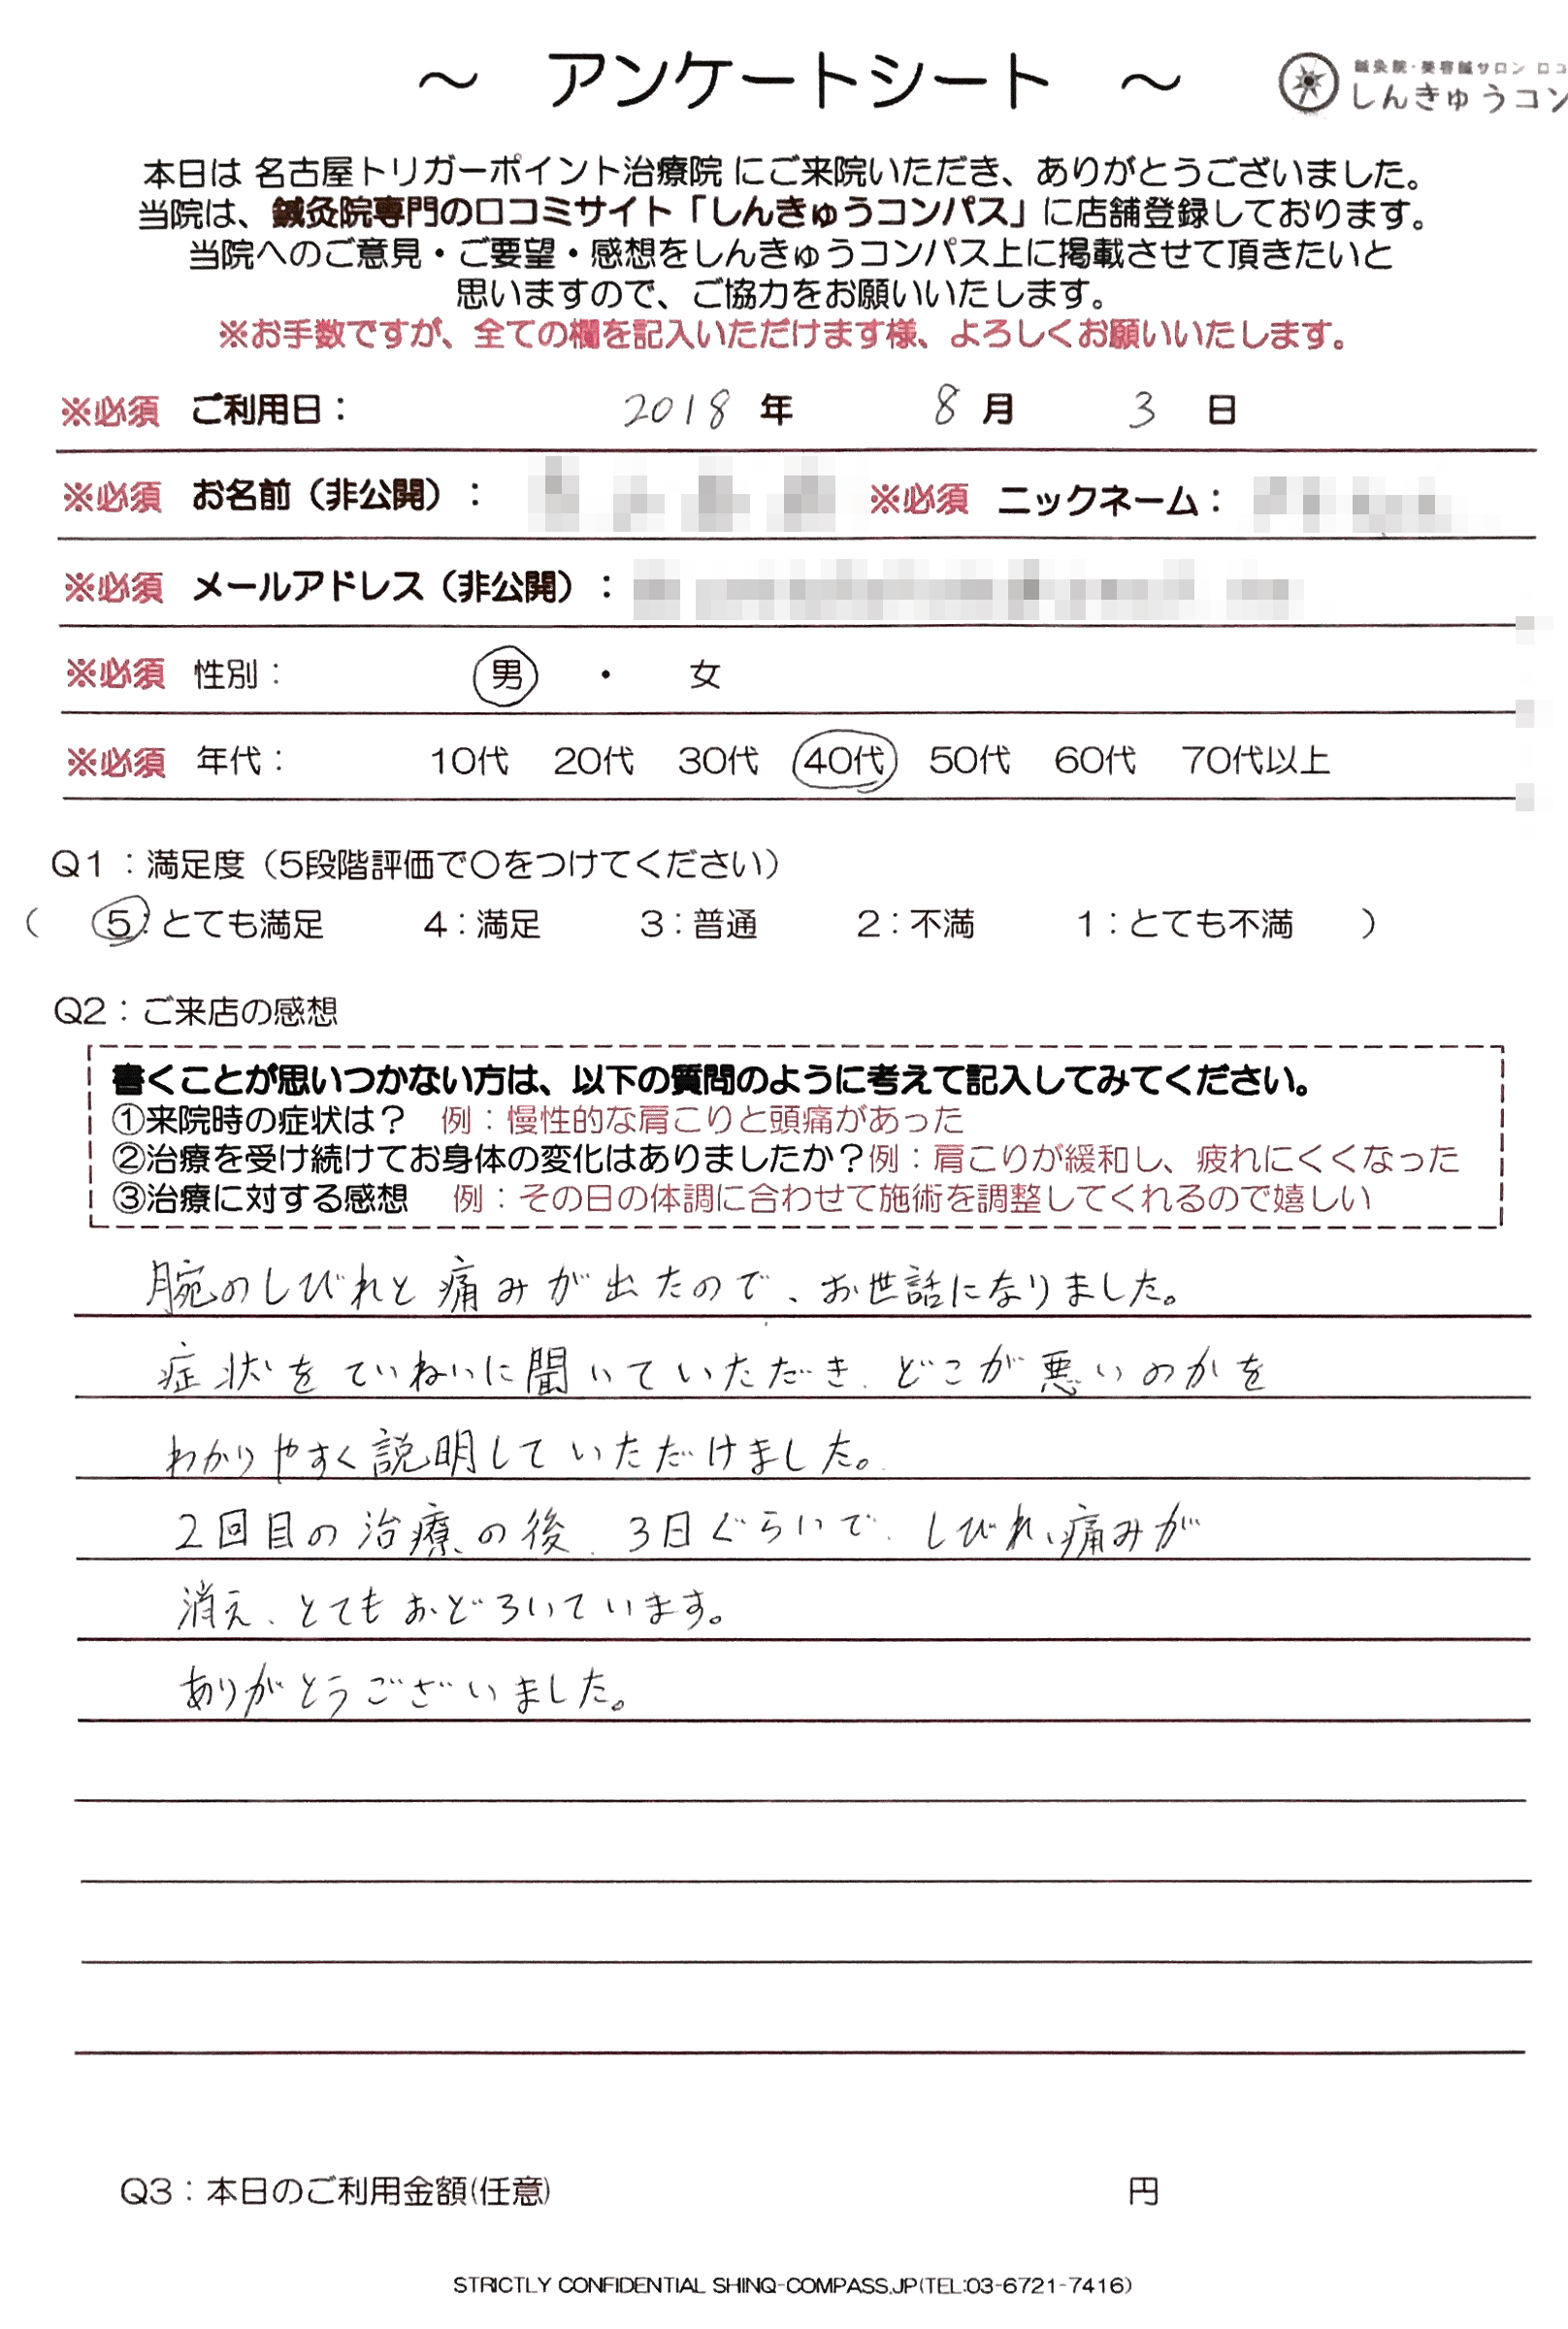 ～ アンケートシート ～
鍼灸院・美容鍼サロン 口コ
しんきゅうコン
本日は 名古屋トリガーポイント治療院 にご来院いただき、ありがとうございました。
当院は、鍼灸院専門の口コミサイト「しんきゅうコンパス」に店舗登録しております。
当院へのご意見・ご要望・感想をしんきゅうコンパス上に掲載させて頂きたいと
思いますので、ご協力をお願いいたします。
※お手数ですが、全ての欄を記入いただけます様、よろしくお願いいたします。
※必須 ご利用日： 2018 年 8 月 3 日
※必須 お名前（非公開）： ※必須 ニックネーム：
※必須 メールアドレス（非公開）：
※必須 性別： 男 ・ 女
※必須 年代： 10代 20代 30代 40代 50代 60代 70代以上
Q1：満足度（5段階評価で〇をつけてください）
（ 5：とても満足 4：満足 3：普通 2：不満 1：とても不満 ）
Q2：ご来店の感想
書くことが思いつかない方は、以下の質問のように考えて記入してみてください。
①来院時の症状は？ 例：慢性的な肩こりと頭痛があった
②治療を受け続けてお身体の変化はありましたか？例：肩こりが緩和し、疲れにくくなった
③治療に対する感想 例：その日の体調に合わせて施術を調整してくれるので嬉しい
腕のしびれと痛みが出たので、お世話になりました。
症状をていねいに聞いていただき、どこが悪いのかを
わかりやすく説明していただけました。
2回目の治療の後、3日ぐらいで、しびれ、痛みが
消え、とてもおどろいています。
ありがとうございました。
Q3：本日のご利用金額(任意) 円
STRICTLY CONFIDENTIAL SHINQ-COMPASS.JP(TEL:03-6721-7416)